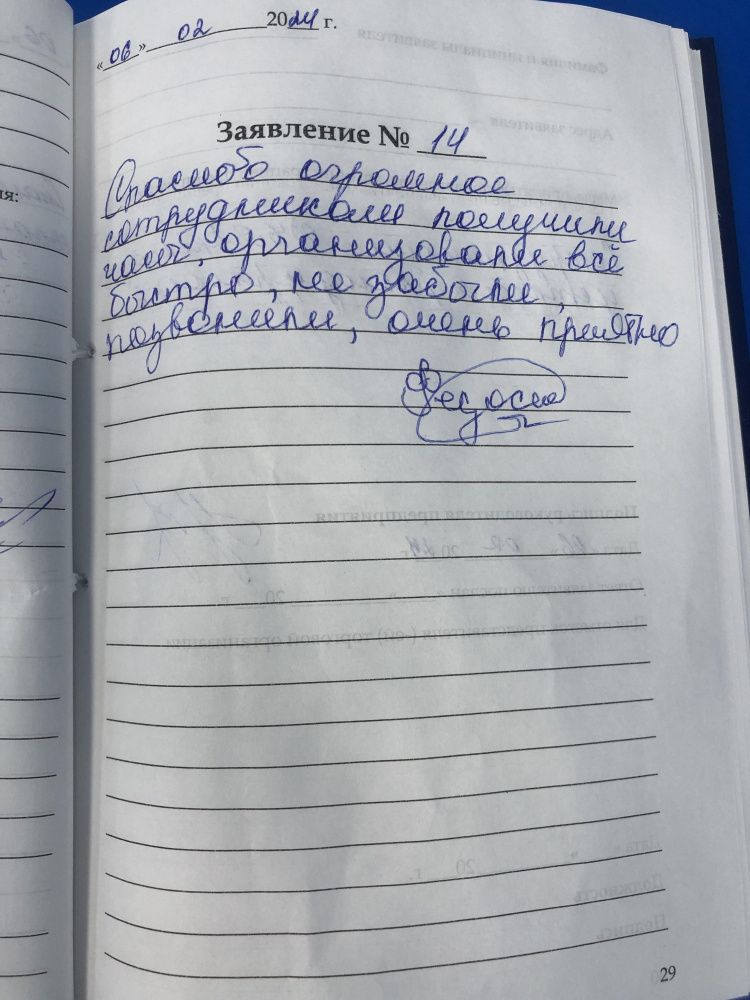 « 06 » 02 2024 г.
Заявление № 14
Спасибо огромное
сотрудникам получили
чай, организовали всё
быстро, не забыли,
позвонили, очень приятно
29